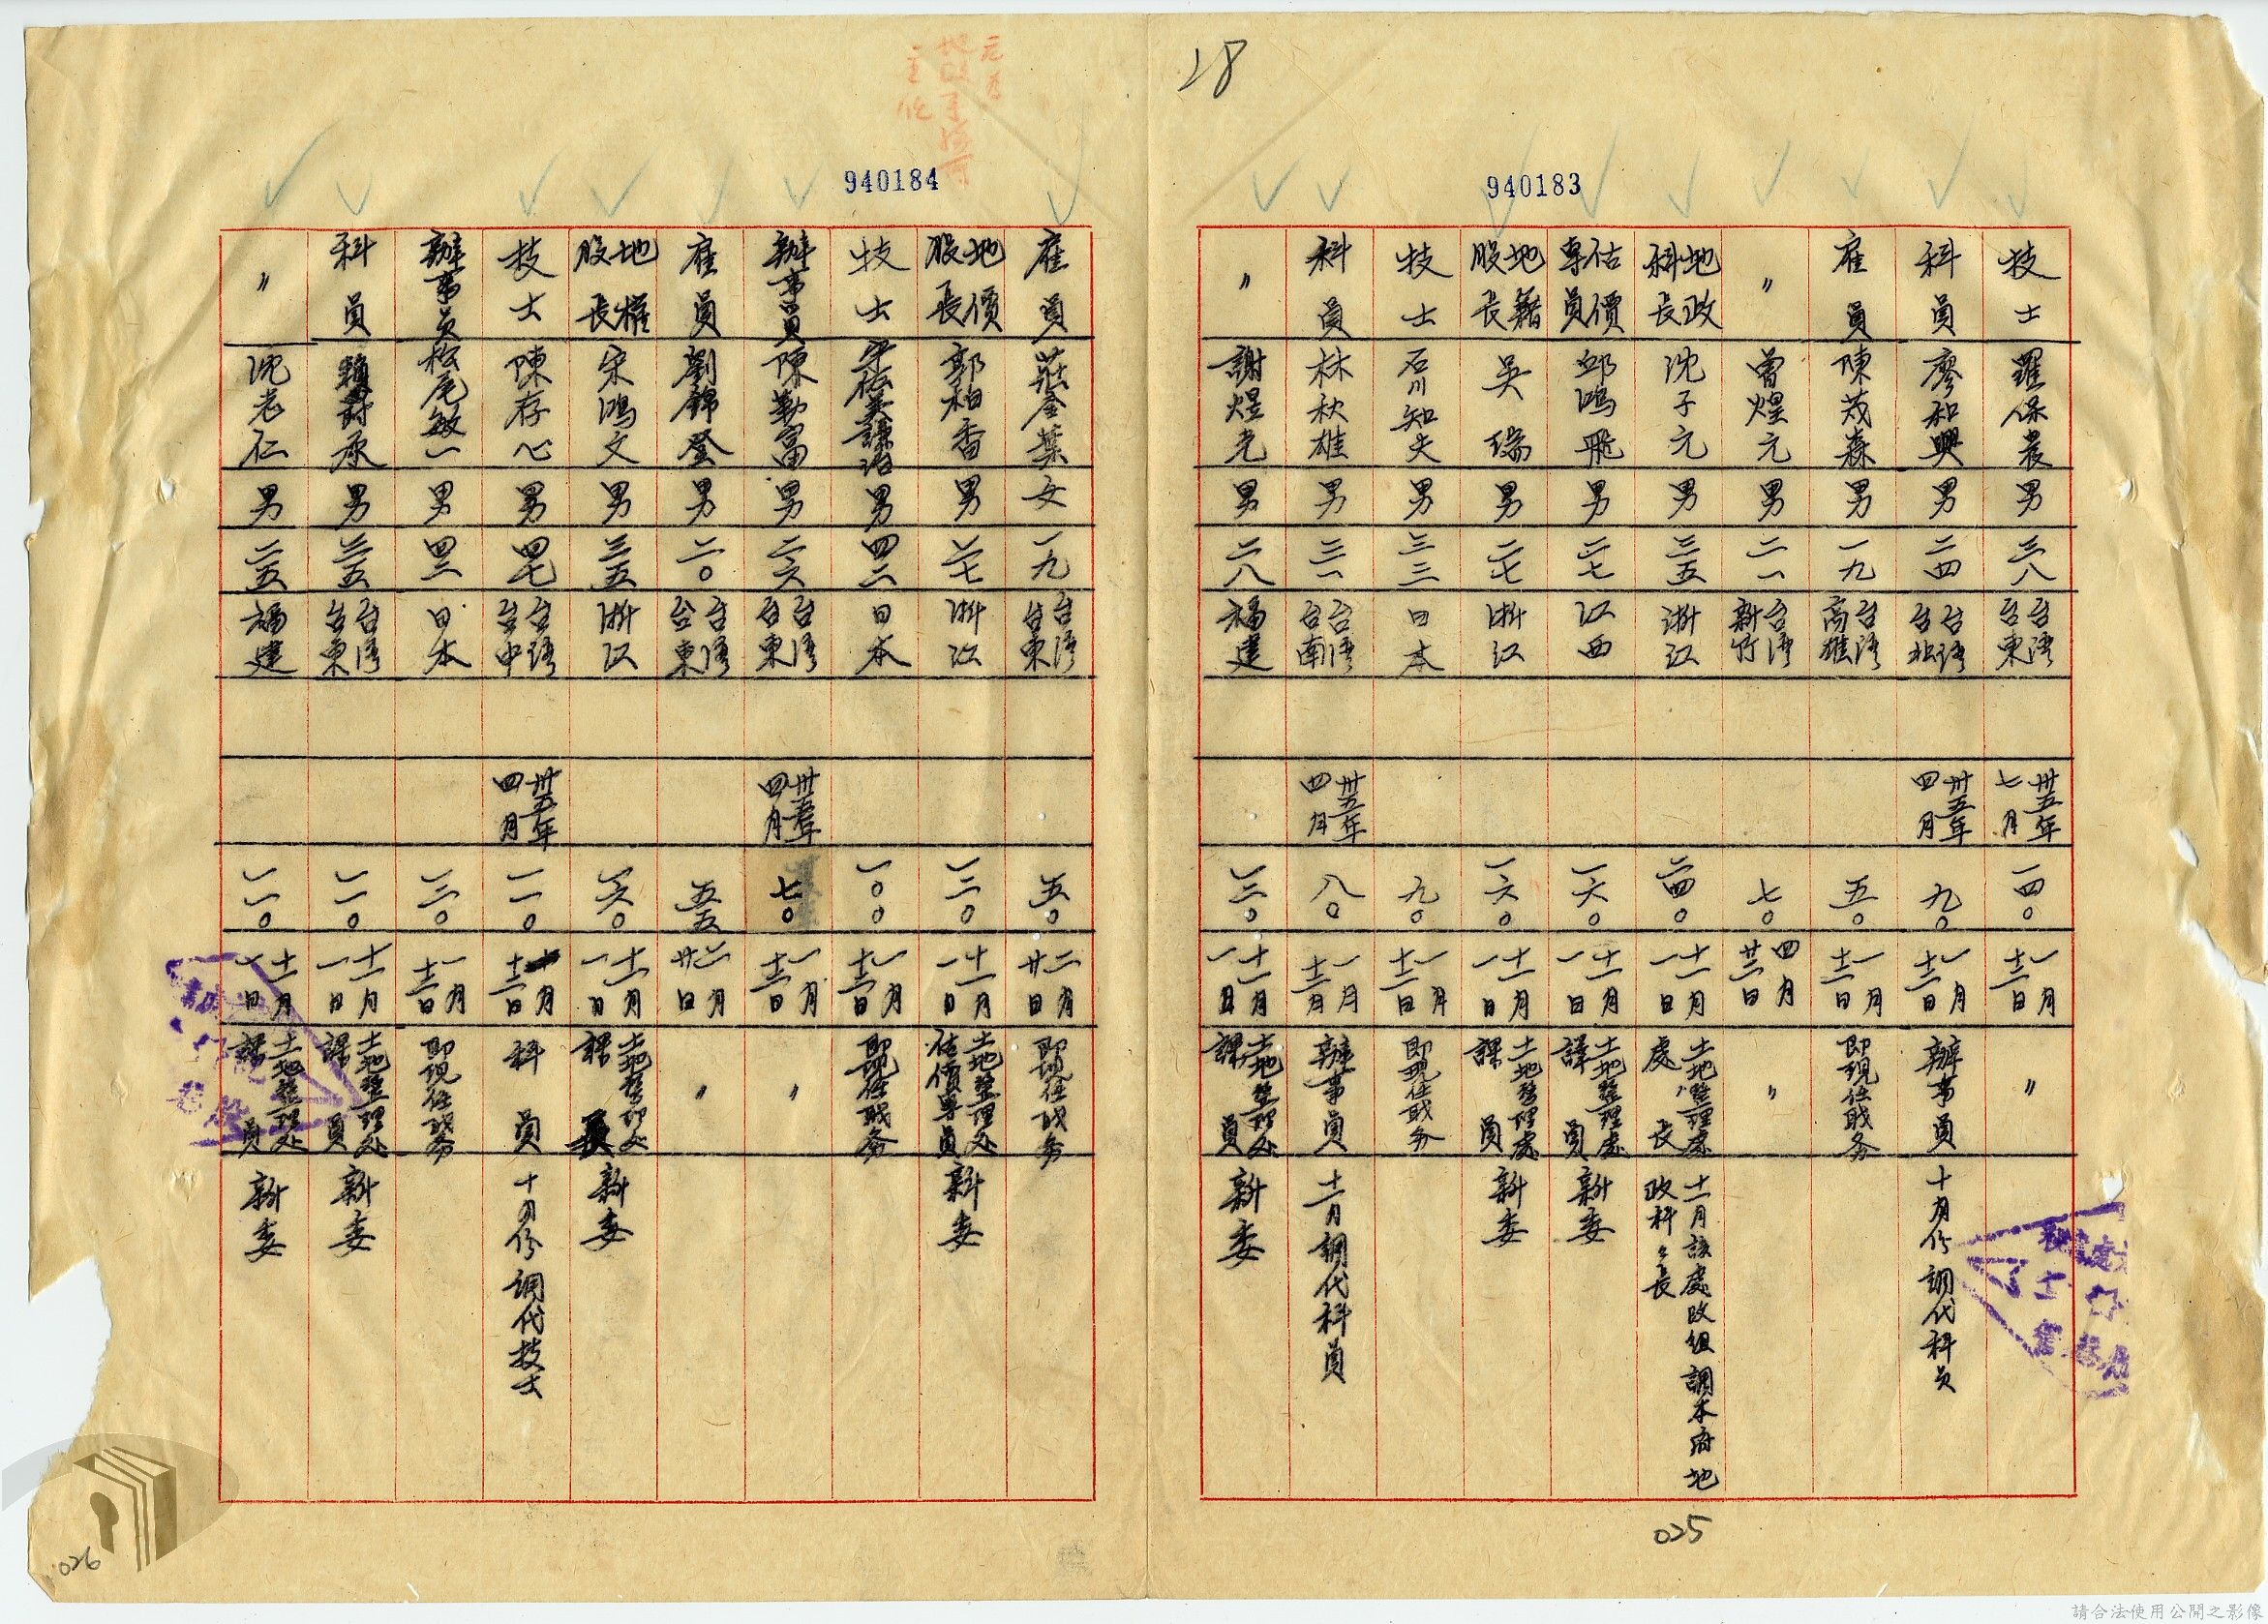 28
940183
技士 羅保農 男 三八 台灣台東 卅五年七月 一四〇 一月十三日 〃
科員 廖和興 男 二四 台灣台北 卅五年四月 九〇 一月十三日 辦事員 十月份調代科員
雇員 陳茂森 男 一九 台灣高雄 五〇 一月十三日 即現任職务
〃 曾煌元 男 二一 台灣新竹 七〇 四月廿三日 〃
地政科長 沈子元 男 三五 浙江 二四〇 十一月一日 土地整理處處長 十一月該處改組調本府地政科科長
估價專員 邱鴻飛 男 二七 江西 一六〇 十一月一日 土地整理處課員 新委
地籍股長 吳瑞 男 二七 浙江 一六〇 十一月一日 土地整理處課員 新委
技士 石川知夫 男 三三 日本 九〇 一月十三日 即現任職务
科員 林秋雄 男 三一 台灣台南 卅五年四月 八〇 一月十三日 辦事員 十一月調代科員
〃 謝煜光 男 二八 福建 一三〇 十一月一日 土地整理处課員 新委
025
940184
雇員 莊金葉 女 一九 台灣台東 五〇 二月廿日 即現任职务
地價股長 郭柏香 男 二七 浙江 一三〇 十一月一日 土地整理处估價專員 新委
技士 男 四二 日本 一〇〇 一月十三日 即現任職务
辦事員 陳勤富 男 二六 台灣台東 卅五年四月 七〇 一月十三日 〃
雇員 劉錦登 男 二〇 台灣台東 五五 二月廿日 〃
地權股長 宋鴻文 男 三五 浙江 一六〇 十一月一日 土地整理处課長 新委
技士 陳存心 男 四七 台灣台中 卅五年四月 一一〇 月十三日 科員 十月份調代技士
辦事員 松尾敏一 男 四二 日本 一三〇 一月十三日 即現任职务
科員 賴封承 男 二五 台灣台東 一一〇 十一月一日 土地整理处課員 新委
〃 沈老仁 男 二五 福建 一一〇 十一月一日 土地整理处課員 新委
026
請合法使用公開之影像